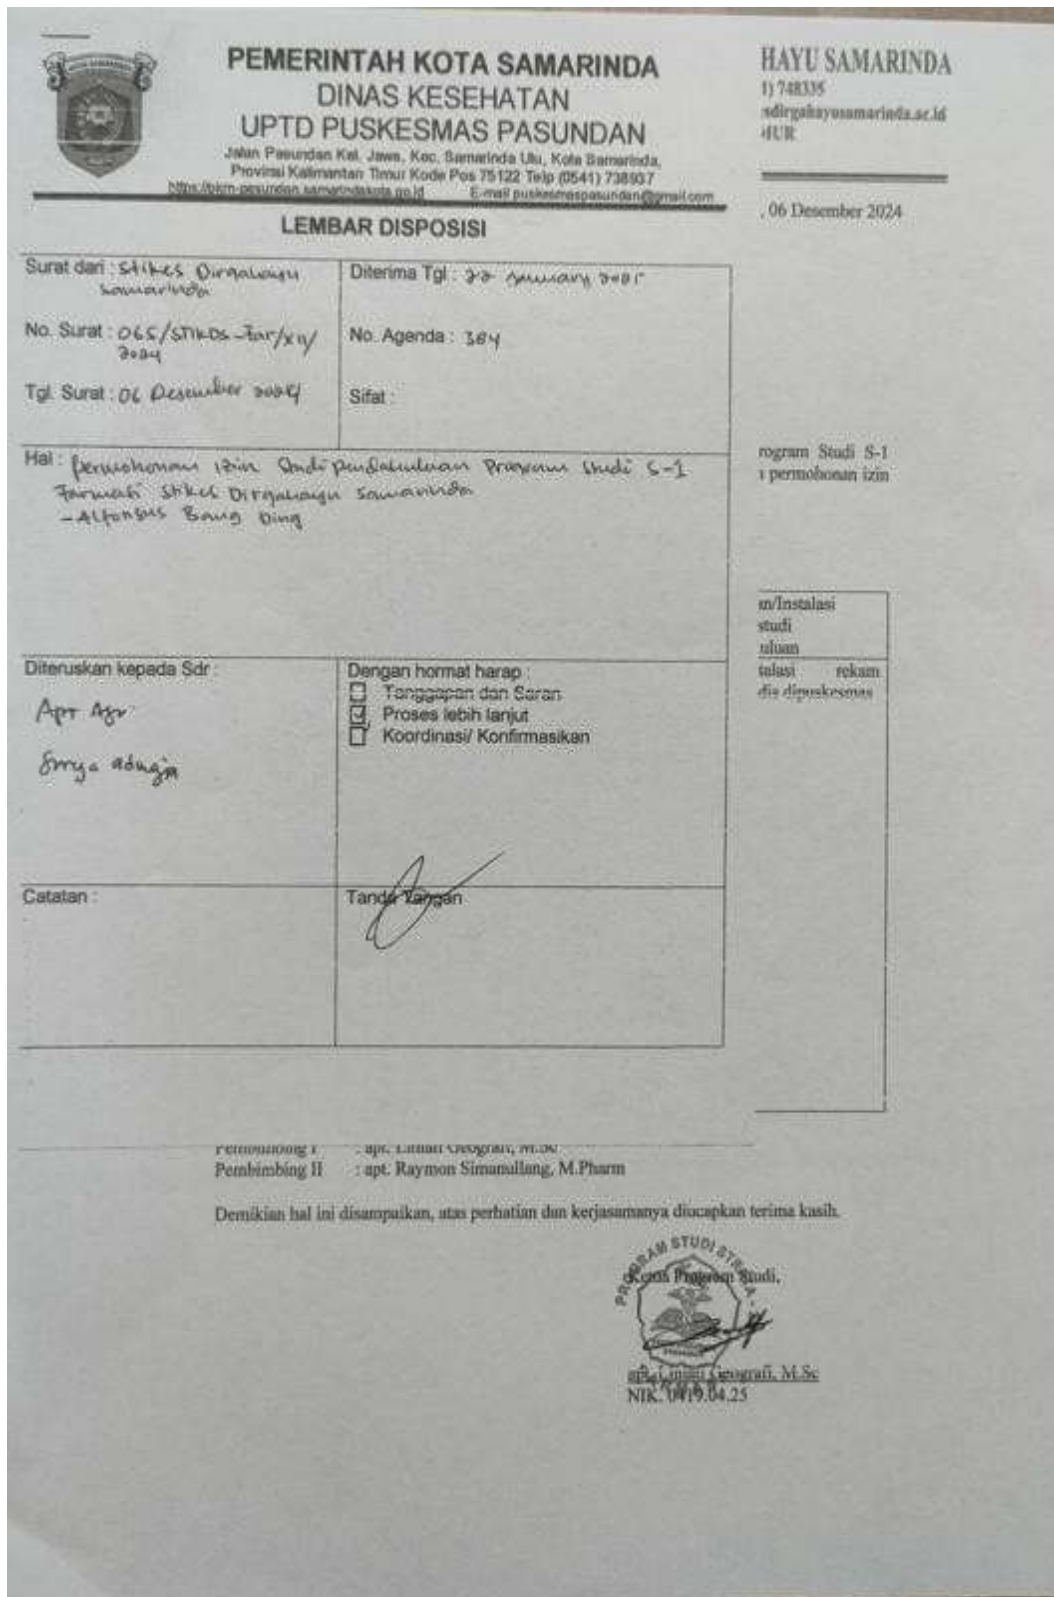 PEMERINTAH KOTA SAMARINDA
DINAS KESEHATAN
UPTD PUSKESMAS PASUNDAN
Jalan Pasundan Kel. Jawa, Kec. Samarinda Ulu, Kota Samarinda,
Provinsi Kalimantan Timur Kode Pos 75122 Telp (0541) 738937
https://pkm-pasundan.samarindakota.go.id E-mail puskesmaspasundan@gmail.com
HAYU SAMARINDA
1) 748335
sdirgahayusamarinda.ac.id
, 06 Desember 2024
LEMBAR DISPOSISI
Surat dari : Stikes Dirgahayu
Samarinda
Diterima Tgl : 22 January 2025
No. Surat : 065/STIKDS-Far/XII/
2024
No. Agenda : 384
Tgl. Surat : 06 Desember 2024
Sifat :
Hal : Permohonan izin Studi pendahuluan Program Studi S-1
Farmasi Stikes Dirgahayu Samarinda
- Alfonsus Bang Ding
rogram Studi S-1
permohonan izin
an/Instalasi
studi
uluan
talasi rekam
dis dipuskesmas
Diteruskan kepada Sdr :
Dengan hormat harap :
Tanggapan dan Saran
Proses lebih lanjut
Koordinasi/ Konfirmasikan
Catatan :
Tanda Tangan
Pembimbing I : apt. Liniati Geografi, M.Sc
Pembimbing II : apt. Raymon Simanullang, M.Pharm
Demikian hal ini disampaikan, atas perhatian dan kerjasamanya diucapkan terima kasih.
PROGRAM STUDI STRATA
Ketua Program Studi,
apt. Liniati Geografi, M.Sc
NIK. 0419.04.25